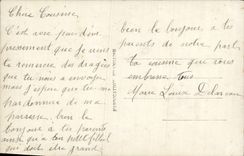 Chère Cousine
C'est avec grand plaisir
présentement que je viens
te remercie des dragées
que tu nous a envoyer
mais j'espère que tu me
pardonnera de ma
paresse. bien le
bonjour à tes parents
ainsi qu'à ton petit filleul
qui doit être grand
bien le bonjour à tes
parents de notre part
ta cousine que vous
embrasse tous
Marie Louise